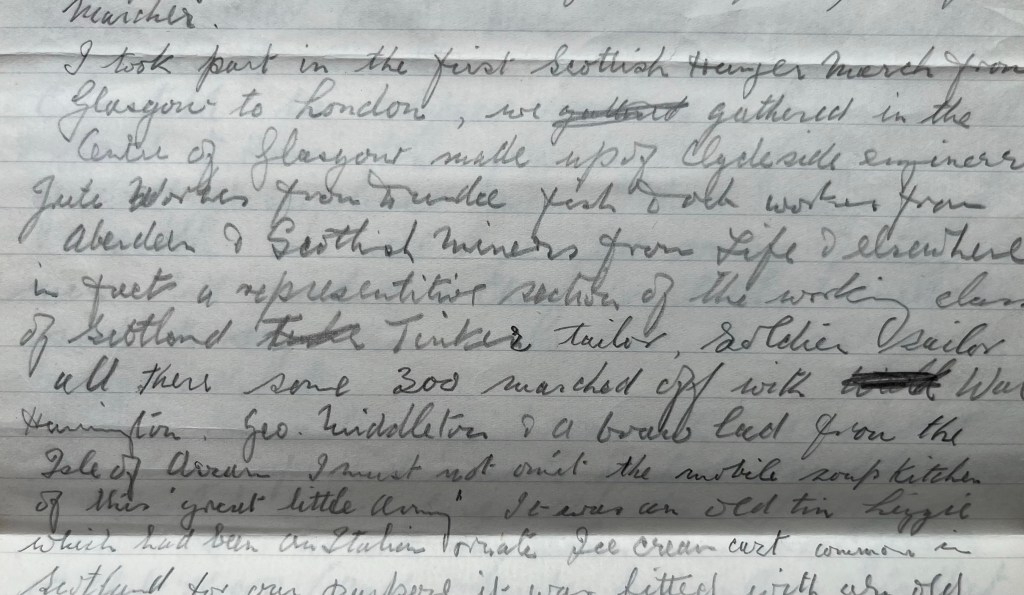 Marcher.
I took part in the first Scottish Hunger March from
Glasgow to London, we gathered in the
Centre of Glasgow made up of Clydeside engineers
Jute Workers from Dundee fish dock workers from
Aberdeen & Scottish Miners from Fife & elsewhere
in fact a representitive section of the working class
of Scotland Tinker tailor, soldier sailor
all there some 300 marched off with Wal
Hannington. Geo. Middleton & a braw lad from the
Isle of Arran I must not omit the mobile soup kitchen
of this 'great little army' It was an old tin lizzie
which had been an Italian ornate Ice cream cart common in
Scotland for our purpose it was fitted with an old